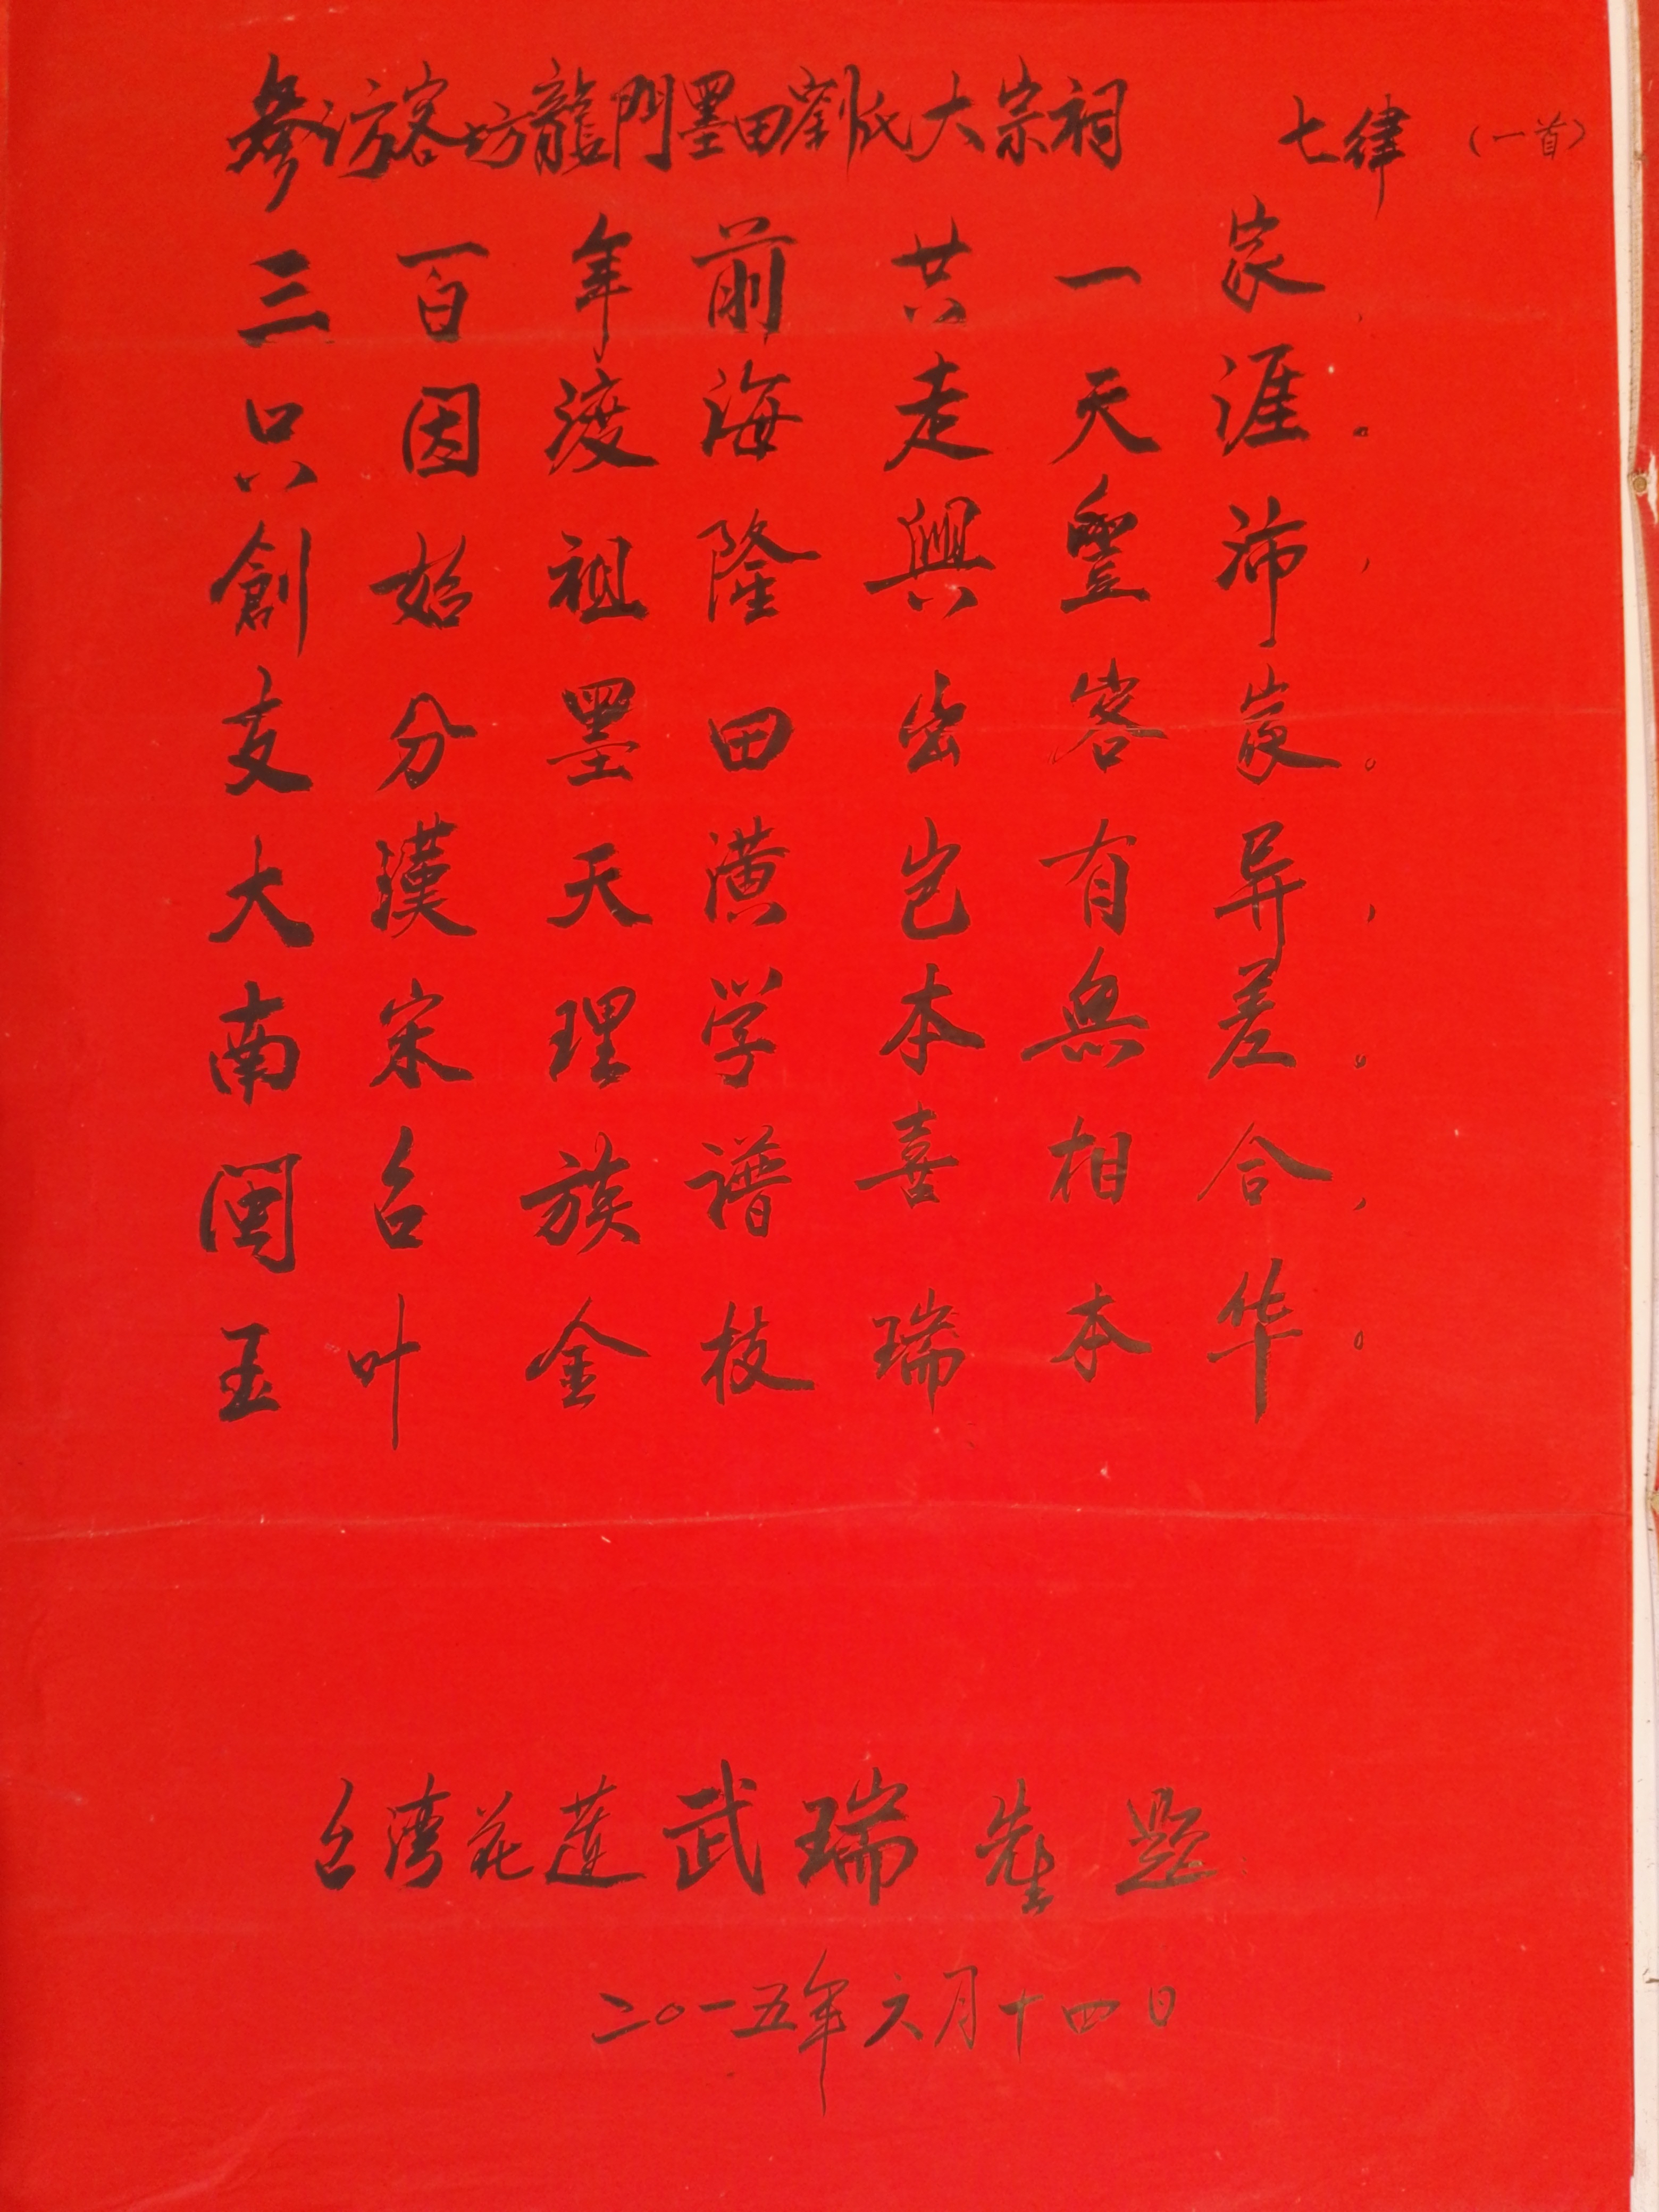 參访客坊龍門墨田劉氏大宗祠 七律（一首）
三百年前共一家，
只因渡海走天涯。
創始祖隆興豐沛，
支分墨田出客家。
大漢天潢岂有异，
南宋理学本無差。
閩台族譜喜相合，
玉叶金枝瑞本华。
台湾花蓮武瑞先生题
二〇一五年六月十四日